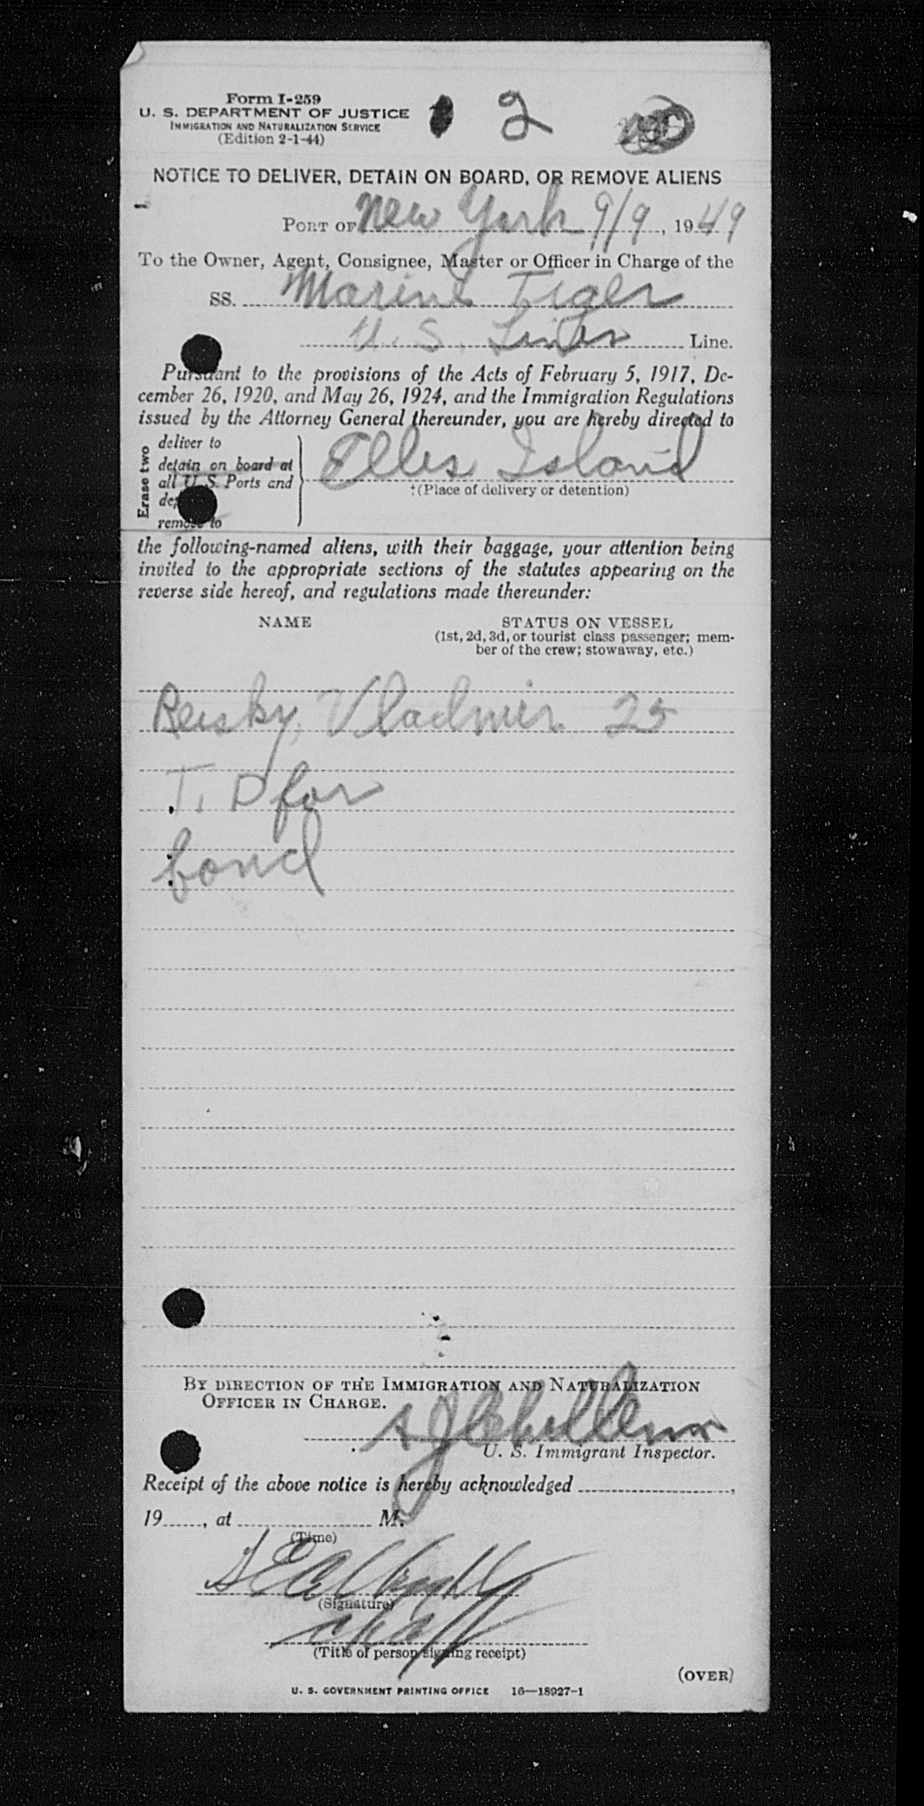 Form I-259
U. S. DEPARTMENT OF JUSTICE
IMMIGRATION AND NATURALIZATION SERVICE
(Edition 2-1-44)
2
NOTICE TO DELIVER, DETAIN ON BOARD, OR REMOVE ALIENS
PORT OF New York 9/9, 1949
To the Owner, Agent, Consignee, Master or Officer in Charge of the
SS. Marine Tiger
U. S. Lines Line.
Pursuant to the provisions of the Acts of February 5, 1917, De-
cember 26, 1920, and May 26, 1924, and the Immigration Regulations
issued by the Attorney General thereunder, you are hereby directed to
Erase two
deliver to
detain on board at
all U. S. Ports and
remove to
Ellis Island
(Place of delivery or detention)
the following-named aliens, with their baggage, your attention being
invited to the appropriate sections of the statutes appearing on the
reverse side hereof, and regulations made thereunder:
NAME
STATUS ON VESSEL
(1st, 2d, 3d, or tourist class passenger; mem-
ber of the crew; stowaway, etc.)
Reisky, Vladmir 25
T. D for
bond
BY DIRECTION OF THE IMMIGRATION AND NATURALIZATION
OFFICER IN CHARGE.
U. S. Immigrant Inspector.
Receipt of the above notice is hereby acknowledged
19 , at M.
(Time)
(Signature)
(Title of person signing receipt)
(OVER)
U. S. GOVERNMENT PRINTING OFFICE 16—18927-1